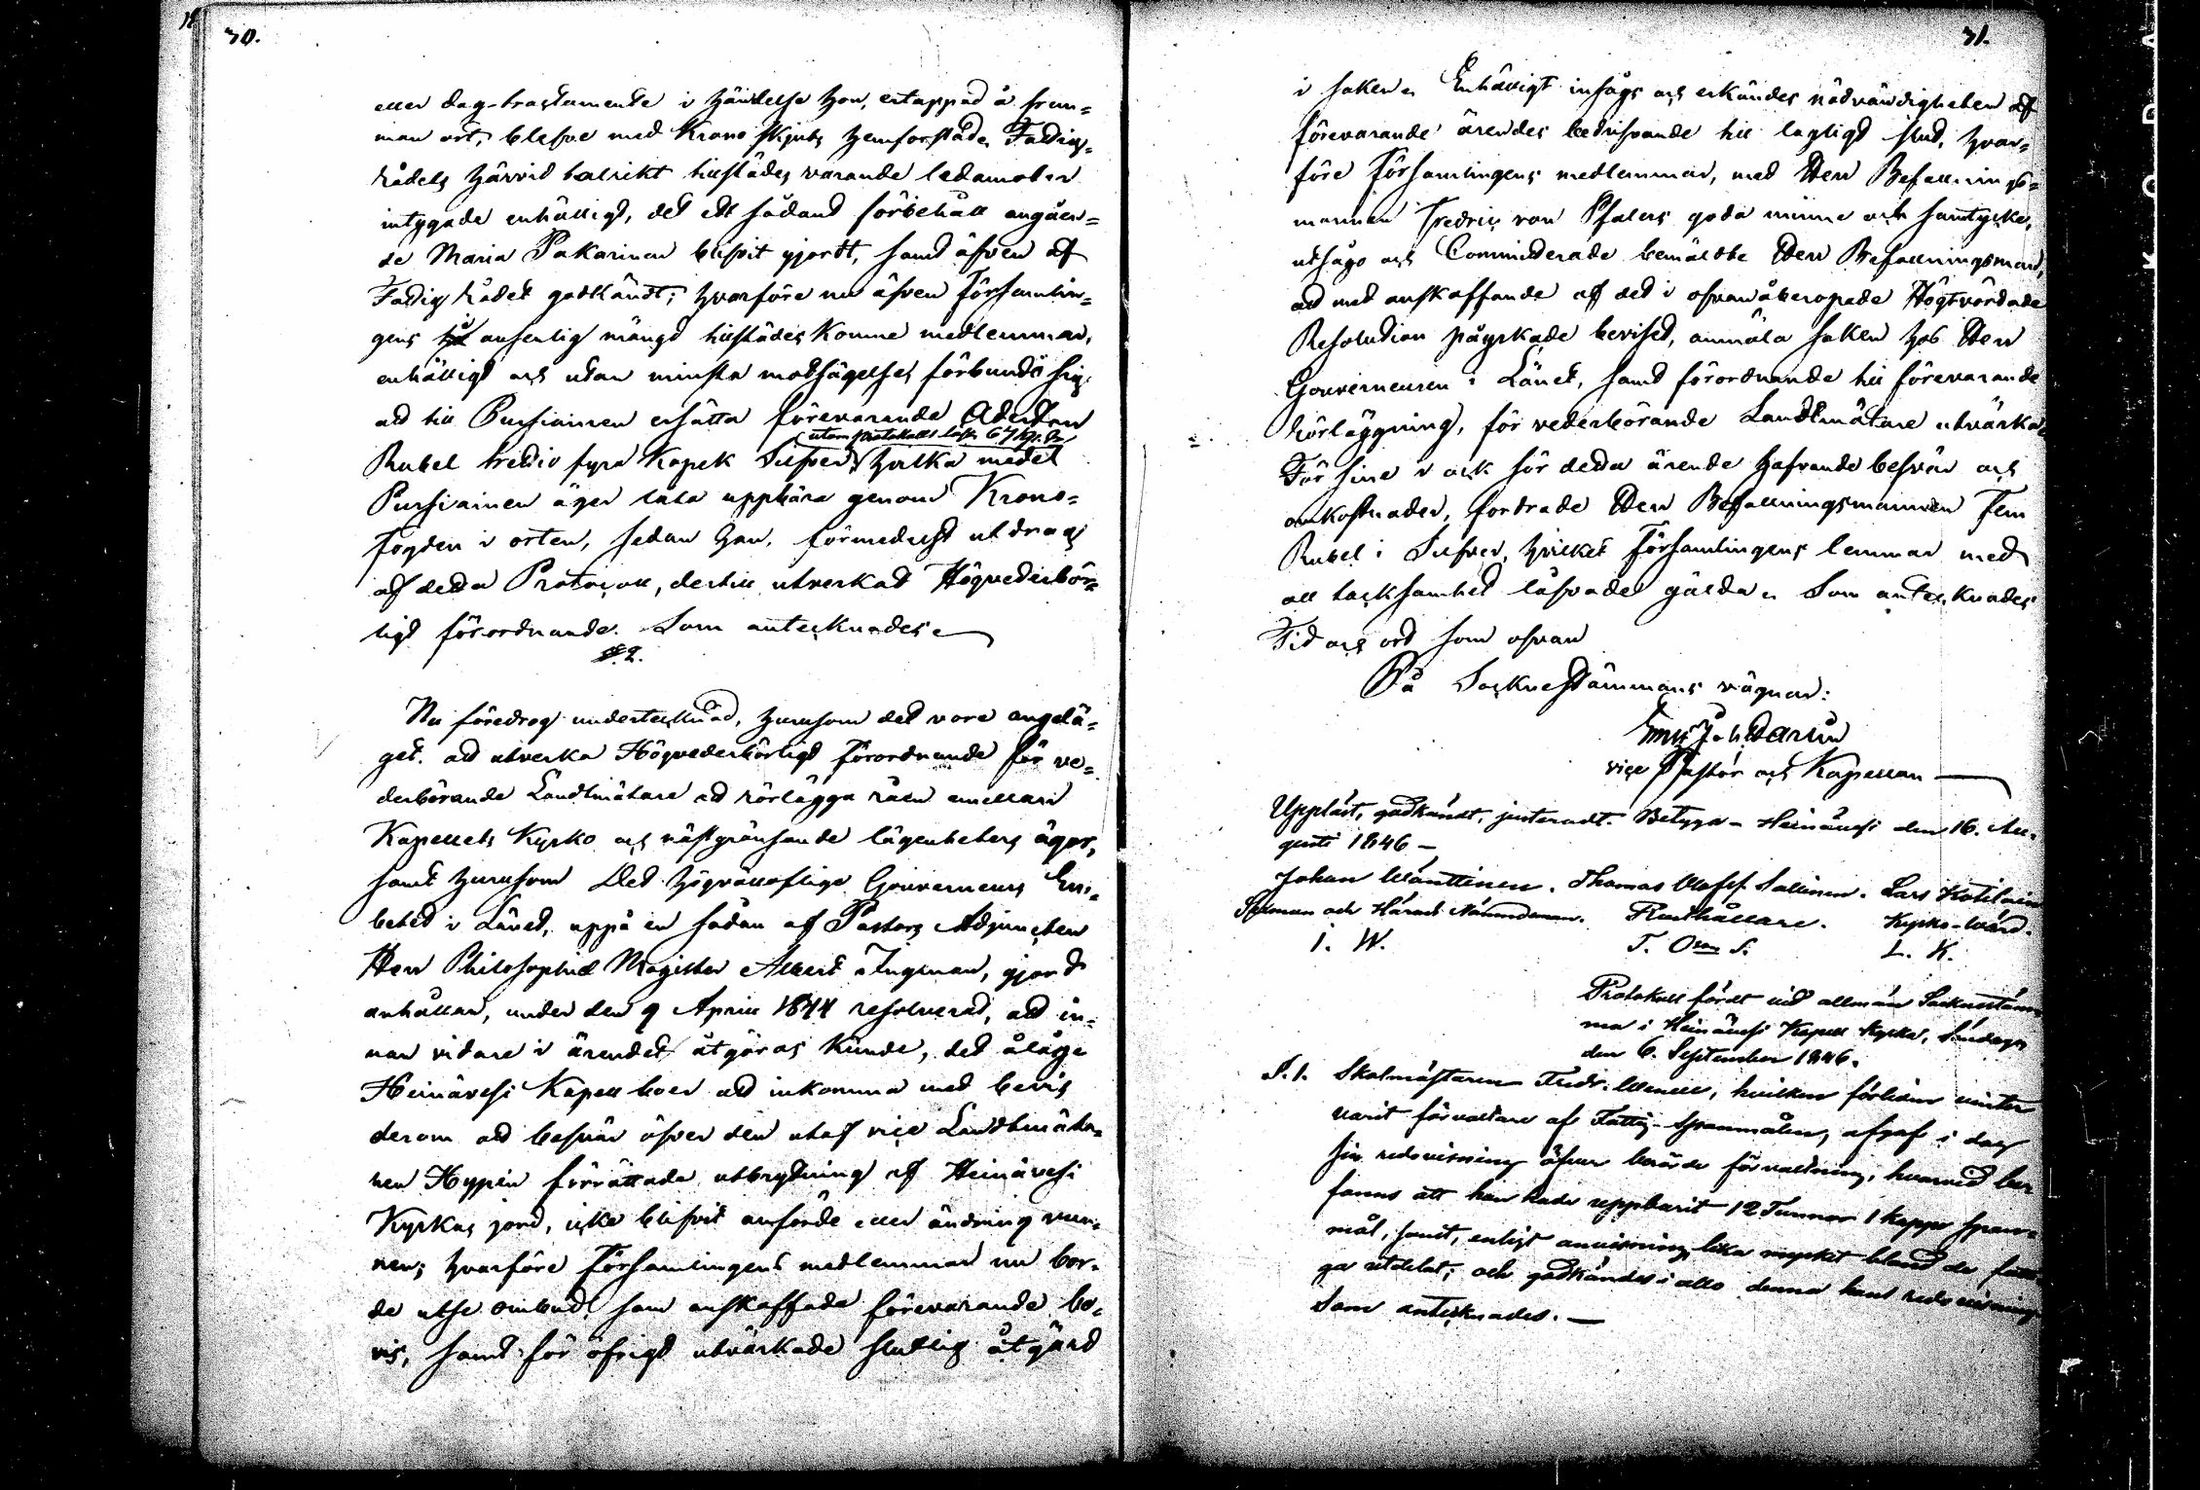 30.
eller dag-tractamente i händelse hon, ertappad å från-
man ort, blefve med Krono skjuts hemforslad. Fattig-
Rådets härvid talrikt tillstädes varande ledamöter
intygade enhälligt, det ett sådant förbehåll angåen-
de Maria Pakarinen blifvit gjordt, samt äfven af
Fattig Rådet godkändt; hvarföre nu äfven Församlin-
gens i ansenlig mängd tillstädes komne medlemmar,
enhälligt och utan minsta motsägelse, förbundo sig,
att till Pursiainen ersätta förevarande Aderton
(utom protokolls lösn 67 kop. Sr)
Rubel tretio fyra Kopek Silfver, hvilka medel
Pursiainen äger låta uppbära genom Krono-
Fogden i orten, sedan han, förmedelst utdrag
af detta Protocoll, dertill utverkat Högvederbör-
ligt förordnande. Som antecknades.
§. 2.
Nu föredrog undertecknad, hurusom det vore angelä-
get att utverka Högvederbörligt förordnande för ve-
derbörande Landtmätare at rörlägga råen emellan
Kapellets Kyrko och näst gränsande lägenheters ägor,
samt hurusom Det Högvällofliga Gouverneurs Em-
betet i Länet, uppå en sådan af Pastors Adjuncten
Herr Philosophiæ Magister Albert Ingman, gjord
anhållan, under den 9 April 1844 resolverat, att in-
nan vidare i ärendet åtgöras kunde, det ålåge
Heinävesi Kapell boer att inkomma med bevis
derom att besvär öfver den utaf vice Landtmäta-
ren Hyppin förrättade utbrytning af Heinävesi
Kyrkas jord, icke blifvit anförde eller ändring vun-
nen; hvarföre Församlingens medlemmar nu bor-
de utse ombud, som anskaffade förevarande be-
vis, samt för öfrigt utvärkade slutlig åtgärd
31.
i saken. Enhälligt insågs och erkändes nödvändigheten af
förevarande ärendes bedrifvande till lagligt slut, hvar-
före Församlingens medlemmar, med Herr Befallnings-
mannen Fredric von Pfalers goda minne och samtycke,
utsågo och Committerade bemälte Herr Befallningsman,
att med anskaffande af det i ofvanåberopade Högtvördade
Resolution påyrkade beviset, anmäla saken hos Herr
Gouverneuren i Länet, samt förordnande till förevarande
rörläggning, för vederbörande Landtmätare utvärka.
För sine i och för detta ärende hafvande besvär och
omkostnader, fordrade Herr Befallningsmannen Fem
Rubel i Silfver, hvilket Församlingens lemmar med
all tacksamhet låfvade gälda. Som antecknades
Tid och ort som ofvan
På Socknestämmans vägnar:
vice Pastor och Kapellan
Uppläst, godkändt, justeradt. Betyga - Heinävesi den 16. Au-
gusti 1846 -
Johan Wänttinen. Thomas Olofsf. Sallinen. Lars Kotilain
Sexman och Härads Nämndeman. Rusthållare. Kyrko-Wärd.
J. W. T. Oson S. L. K.
Protokoll fördt vid allmän Sockenstäm-
ma i Heinävesi Kapell Kyrka, Söndagen
den 6. September 1846.
§. 1. Skolmästaren Fredr. Wenell, hvilken förliden vinter
varit förvaltare af Fattig-Spannmålen, afgaf i dag
sin redovisning öfver berörde förvaltning, hvarvid be-
fanns att han hade uppburit 12 Tunnor 1 kappe Spann-
mål, samt, enligt anvisning lika mycket bland de fatti-
ga utdelat; och godkändes i allo denna hans redovisning
Som antecknades. —